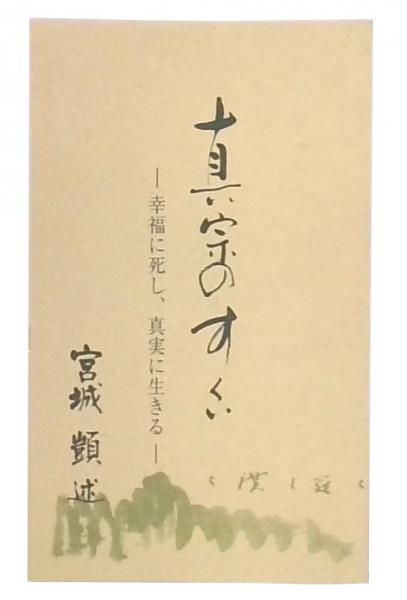 真宗のすくい
― 幸福に死し、真実に生きる ―
宮城 顗 述